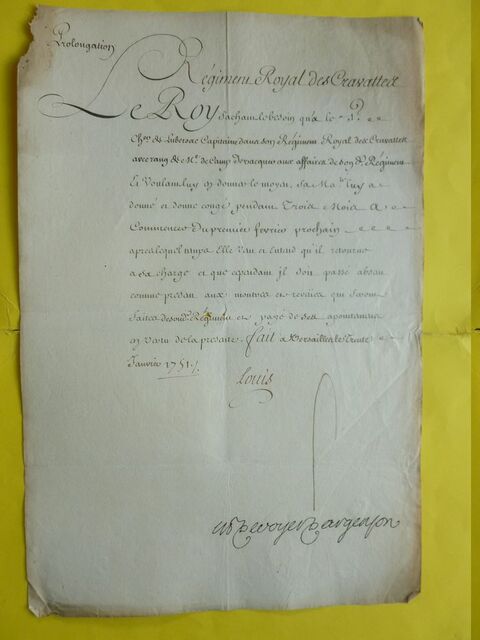 Prolongation
Régiment Royal des Cravattes
Le Roy sachant le besoin qu'a le S.
Cher de Lubersac Capitaine dans son Régiment Royal des Cravattes
avec rang de Me. de Camp de vacquer aux affaires de son d. Régiment
Et Voulant luy en donner le moyen, Sa Maté. luy a
donné et donne congé pendant Trois Mois A
Commencer Du premier fevrier prochain
apres lequel temps Elle Veut et Entend qu'il retourne
a sa charge et que cependant il soit passé absent
comme present aux montres et reveües qui seront
faites de son d. Régiment et payé de ses apointemens
en vertu de la presente. fait a Versailles le Trente
Janvier 1751./.
Louis
de Voyer D'argenson